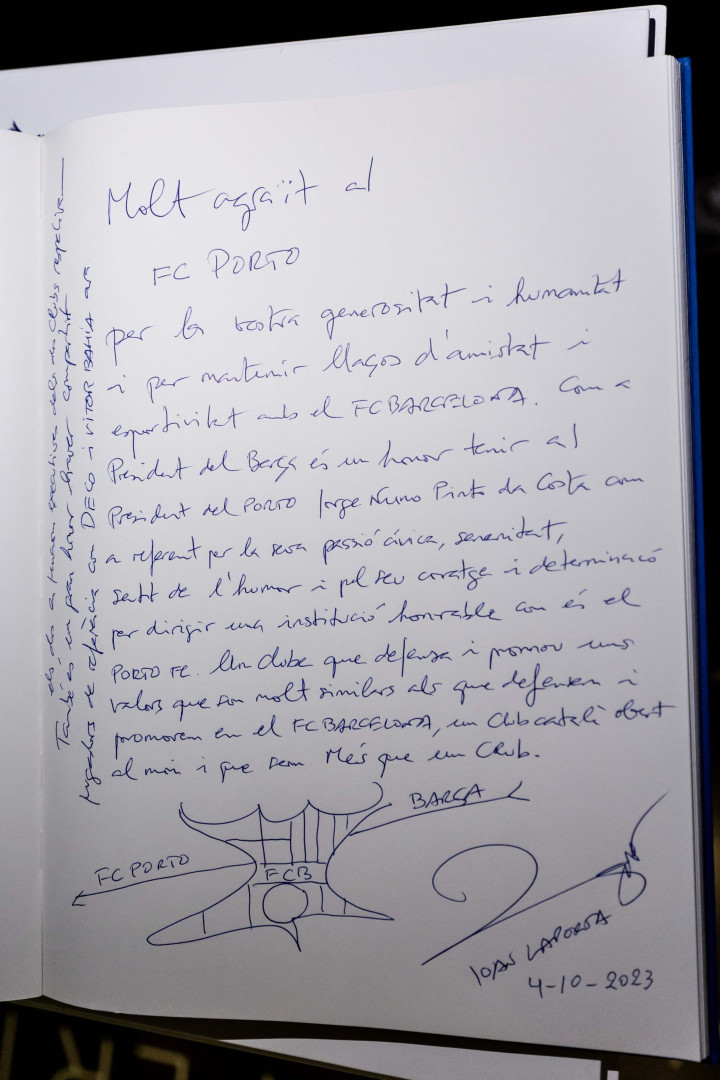 Molt agraït al
FC PORTO
per la vostra generositat i humanitat
i per mantenir llaços d'amistat i
esportivitat amb el FC BARCELONA. Com a
President del Barça és un honor tenir al
President del PORTO Jorge Nuno Pinto da Costa com
a referent per la seva passió cívica, serenitat,
sentit de l'humor i pel seu coratge i determinació
per dirigir una institució honorable com és el
PORTO FC. Un Clube que defensa i promou uns
valors que son molt similars als que defensem i
promovem en el FC BARCELONA, un Club català obert
al món i que sem Més que un Club.
També és un gran honor haver compartit
jugadors de referència com DECO i VITOR BAHIA ara
els dos a funcions executives dels dos Clubs respectius
BARÇA
FC PORTO
FCB
JOAN LAPORTA
4-10-2023